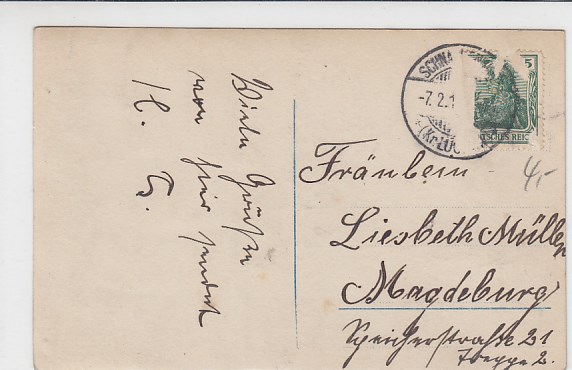 Viele Grüße
von hier sendet
H. G.
SCHNA
-7.2.1
(Kr. LÜC
5
TSCHES REICH
4,-
Fräulein
Liesbeth Müller
Magdeburg
Speicherstraße 21
Treppe 2.